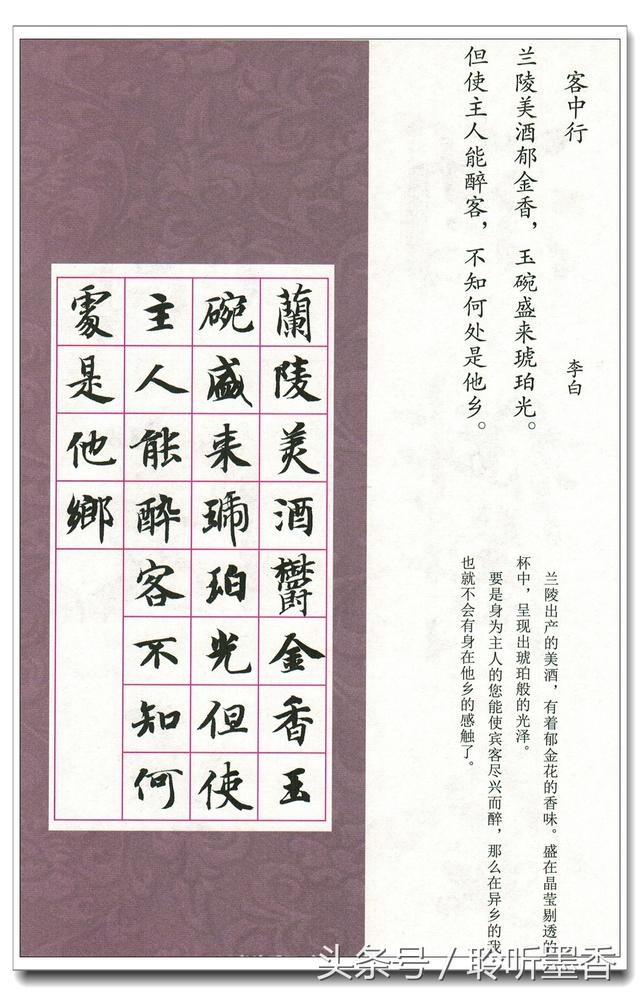 客中行
李白
兰陵美酒郁金香，玉碗盛来琥珀光。
但使主人能醉客，不知何处是他乡。
兰陵出产的美酒，有着郁金花的香味。盛在晶莹剔透的
杯中，呈现出琥珀般的光泽。
要是身为主人的您能使宾客尽兴而醉，那么在异乡的我
也就不会有身在他乡的感触了。
蘭陵美酒鬱金香玉
碗盛来琥珀光但使
主人能醉客不知何
處是他鄉
头条号／聆听墨香